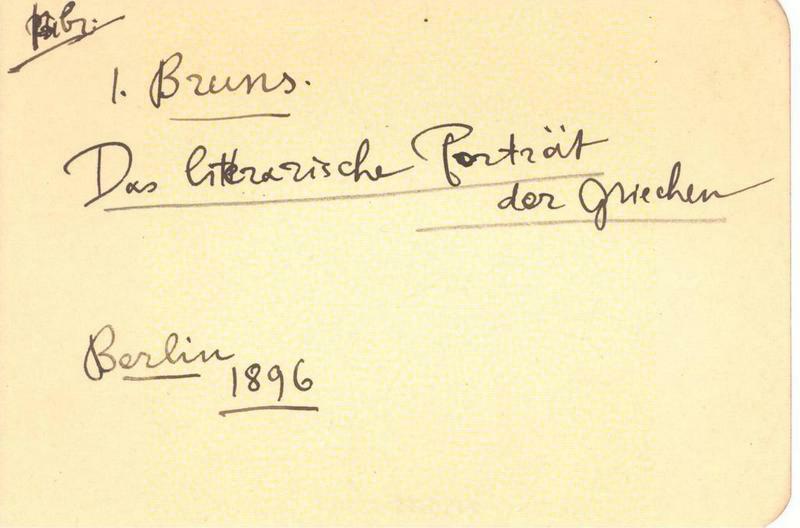 Bibr.
I. Bruns.
Das literarische Porträt
der Griechen
Berlin
1896